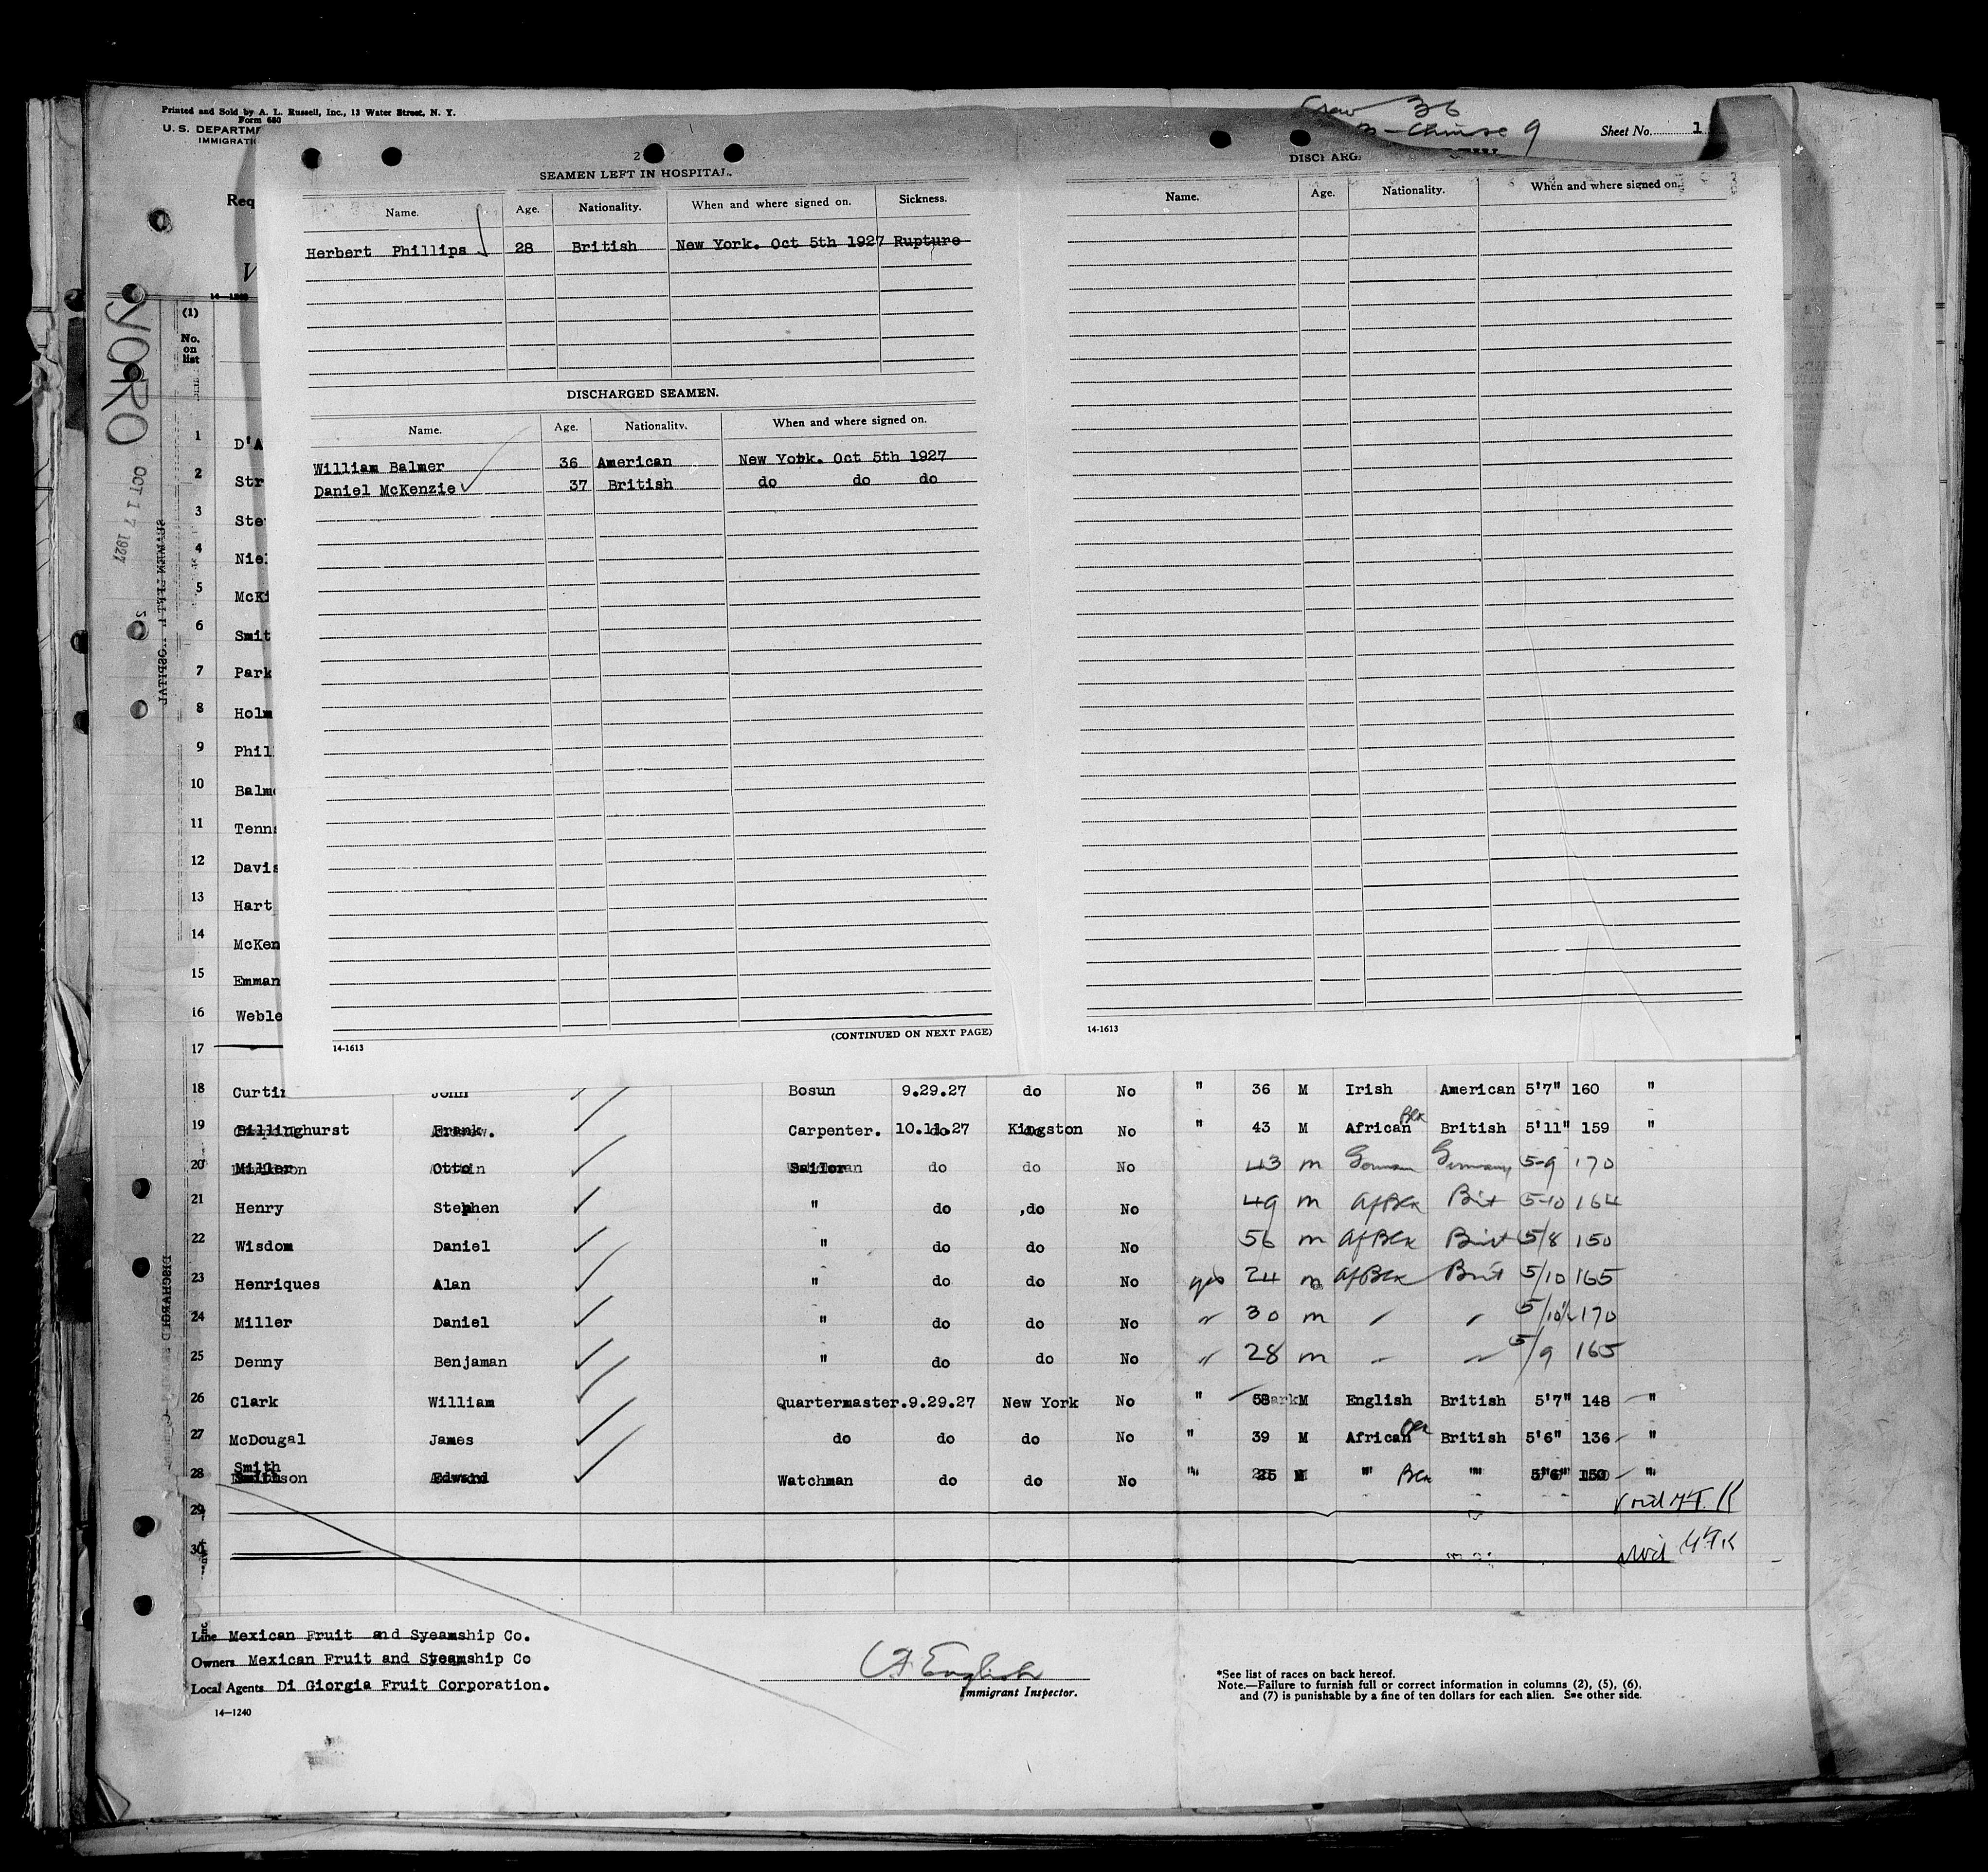 Printed and Sold by A. L. Russell, Inc., 13 Water Street, N. Y.
Form 680
U. S. DEPARTME
IMMIGRATIO
Crew 36
Chinese 9
Sheet No. 1
Req
V
14—1240
YORO
OCT 17 1927
2
SEAMEN LEFT IN HOSPITAL.
Name. Age. Nationality. When and where signed on. Sickness.
Herbert Phillips 28 British New York. Oct 5th 1927 Rupture
DISCHARGED SEAMEN.
Name. Age. Nationality. When and where signed on.
William Balmer 36 American New York. Oct 5th 1927
Daniel McKenzie 37 British do do do
(CONTINUED ON NEXT PAGE)
14-1613
DISCHARG
Name. Age. Nationality. When and where signed on.
14-1613
(1)
No.
on
list
1 D'A
2 Str
3 Ste
4 Niel
5 McKi
6 Smit
7 Park
8 Holm
9 Phil
10 Balm
11 Tenn
12 Davis
13 Hart
14 McKen
15 Emman
16 Weble
17
18 Curtin John Bosun 9.29.27 do No " 36 M Irish American 5'7" 160 "
19 Billinghurst Frank. Carpenter. 10.11.27 Kingston No " 43 M African Blk British 5'11" 159 "
20 Miller Otto Sailor do do No 43 m German Germany 5-9 170
21 Henry Stephen " do do No 49 m Af Blk Brit 5-10 164
22 Wisdom Daniel " do do No 56 m Af Blk Brit 5/8 150
23 Henriques Alan " do do No yes 24 m Af Blk Brit 5/10 165
24 Miller Daniel " do do No " 30 m " " 5/10½ 170
25 Denny Benjaman " do do No " 28 m " " 5/9 165
26 Clark William Quartermaster. 9.29.27 New York No " 58 M English British 5'7" 148 "
27 McDougal James do do do No " 39 M African Blk British 5'6" 136 "
28 Smith Edward Watchman do do No " 25 M " Blk " 5'6" 150 "
29 Void
30 Void
Line Mexican Fruit and Syeamship Co.
Owners Mexican Fruit and Steamship Co
Local Agents Di Giorgia Fruit Corporation.
14—1240
English
Immigrant Inspector.
*See list of races on back hereof.
Note.—Failure to furnish full or correct information in columns (2), (5), (6),
and (7) is punishable by a fine of ten dollars for each alien. See other side.